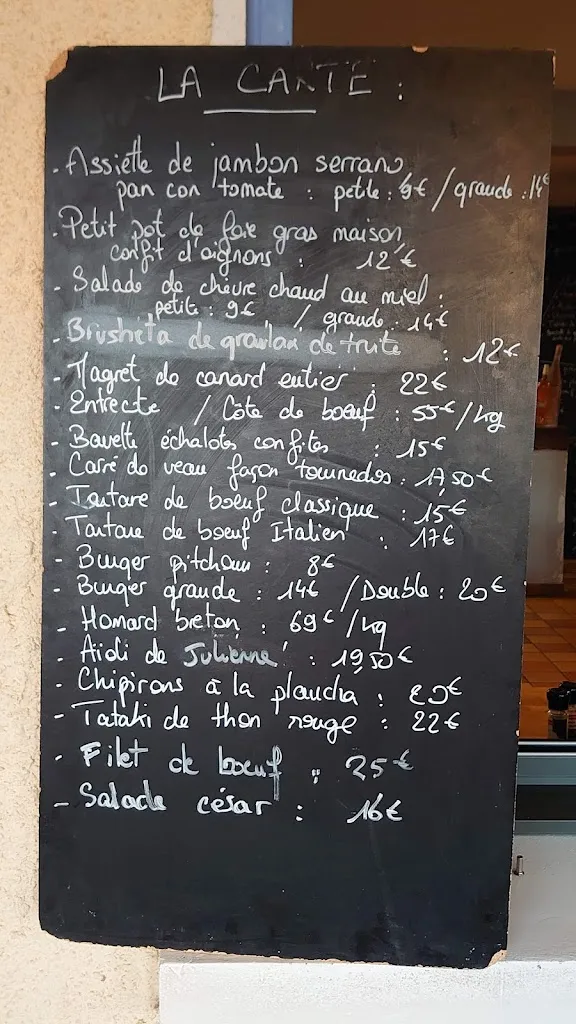 LA CARTE :
- Assiette de jambon serrano
pan con tomate : petite : 9€ / grande : 14€
- Petit pot de foie gras maison,
confit d'oignons : 12€
- Salade de chèvre chaud au miel :
petite : 9€ / grande : 14€
- Brusheta de gravlax de truite : 12€
- Magret de canard entier : 22€
- Entrecte / Côte de boeuf : 55€/kg
- Bavette échalotes confites : 15€
- Carré de veau façon tournedos : 17,50€
- Tartare de boeuf classique : 15€
- Tartare de boeuf Italien : 17€
- Burger pitchoun : 8€
- Burger grande : 14€ / Double : 20€
- Homard breton : 69€/kg
- Aïoli de Julienne : 19,50€
- Chipirons à la plancha : 20€
- Tataki de thon rouge : 22€
- Filet de boeuf : 25€
- Salade césar : 16€